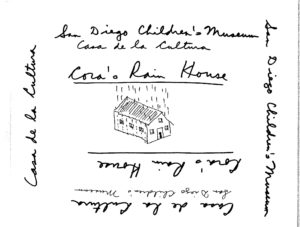 San Diego Children's Museum
Casa de la Cultura
Cora's Rain House
Casa de la Cultura
San Diego Children's Museum
Cora's Rain House
San Diego Children's Museum
Casa de la Cultura